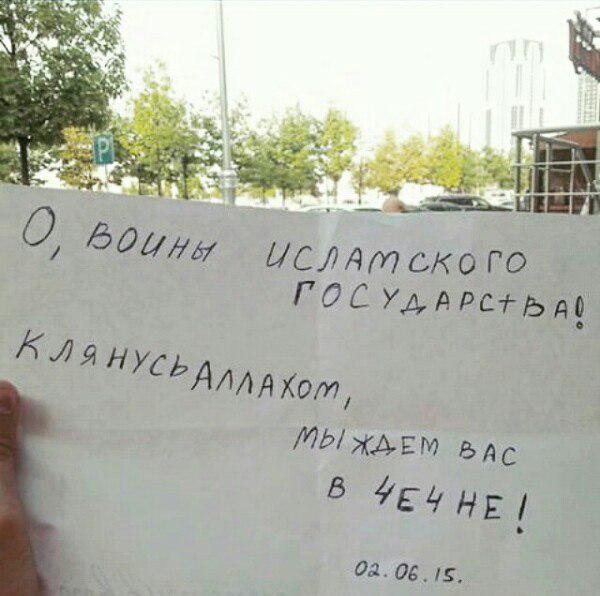 P
О, ВОИНЫ ИСЛАМСКОГО
ГОСУДАРСТВА!
КЛЯНУСЬ АЛЛАХОМ,
МЫ ЖДЕМ ВАС
В ЧЕЧНЕ!
02.06.15.